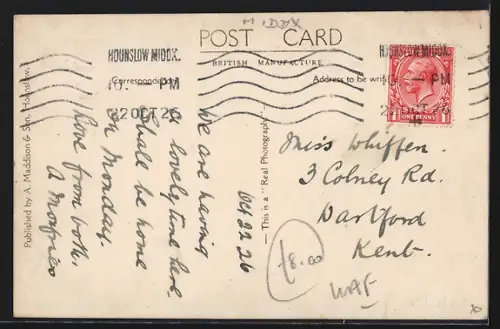 MIDDX
POST CARD
BRITISH MANUFACTURE
HOUNSLOW MIDDX.
10. — PM
22 OCT 26
HOUNSLOW MIDDX.
— PM
OCT 26
Correspondence
Address to be
ONE PENNY
Oct 22 26
We are having
a lovely time here.
Shall be home
on Monday.
Love from both.
A
Published by A. Maddison & Son, Hounslow.
— This is a "Real Photograph" —
Miss Whiffen.
3 Colney Rd.
Dartford
Kent.
£8.00